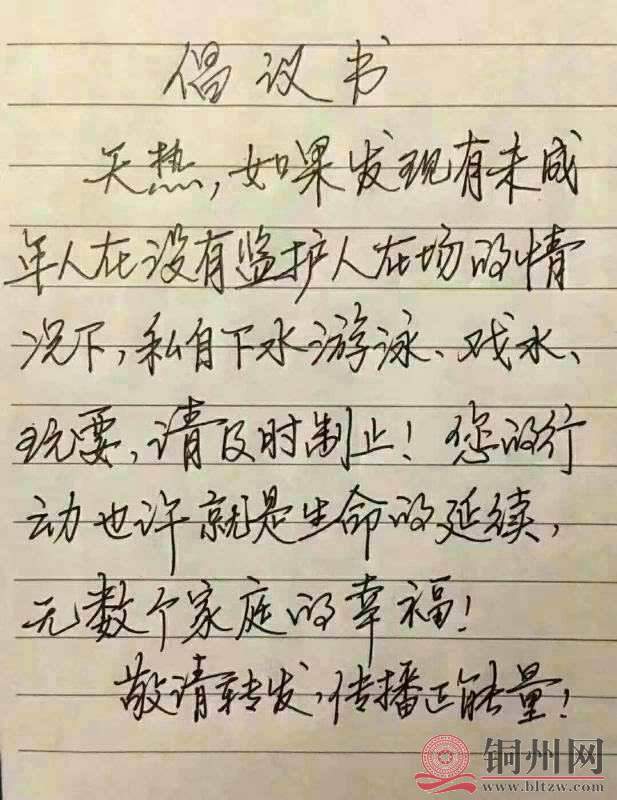 倡议书
天热,如果发现有未成
年人在没有监护人在场的情
况下,私自下水游泳、戏水、
玩耍,请及时制止!您的行
动也许就是生命的延续,
无数个家庭的幸福!
敬请转发,传播正能量!
铜州网
www.bltzw.com